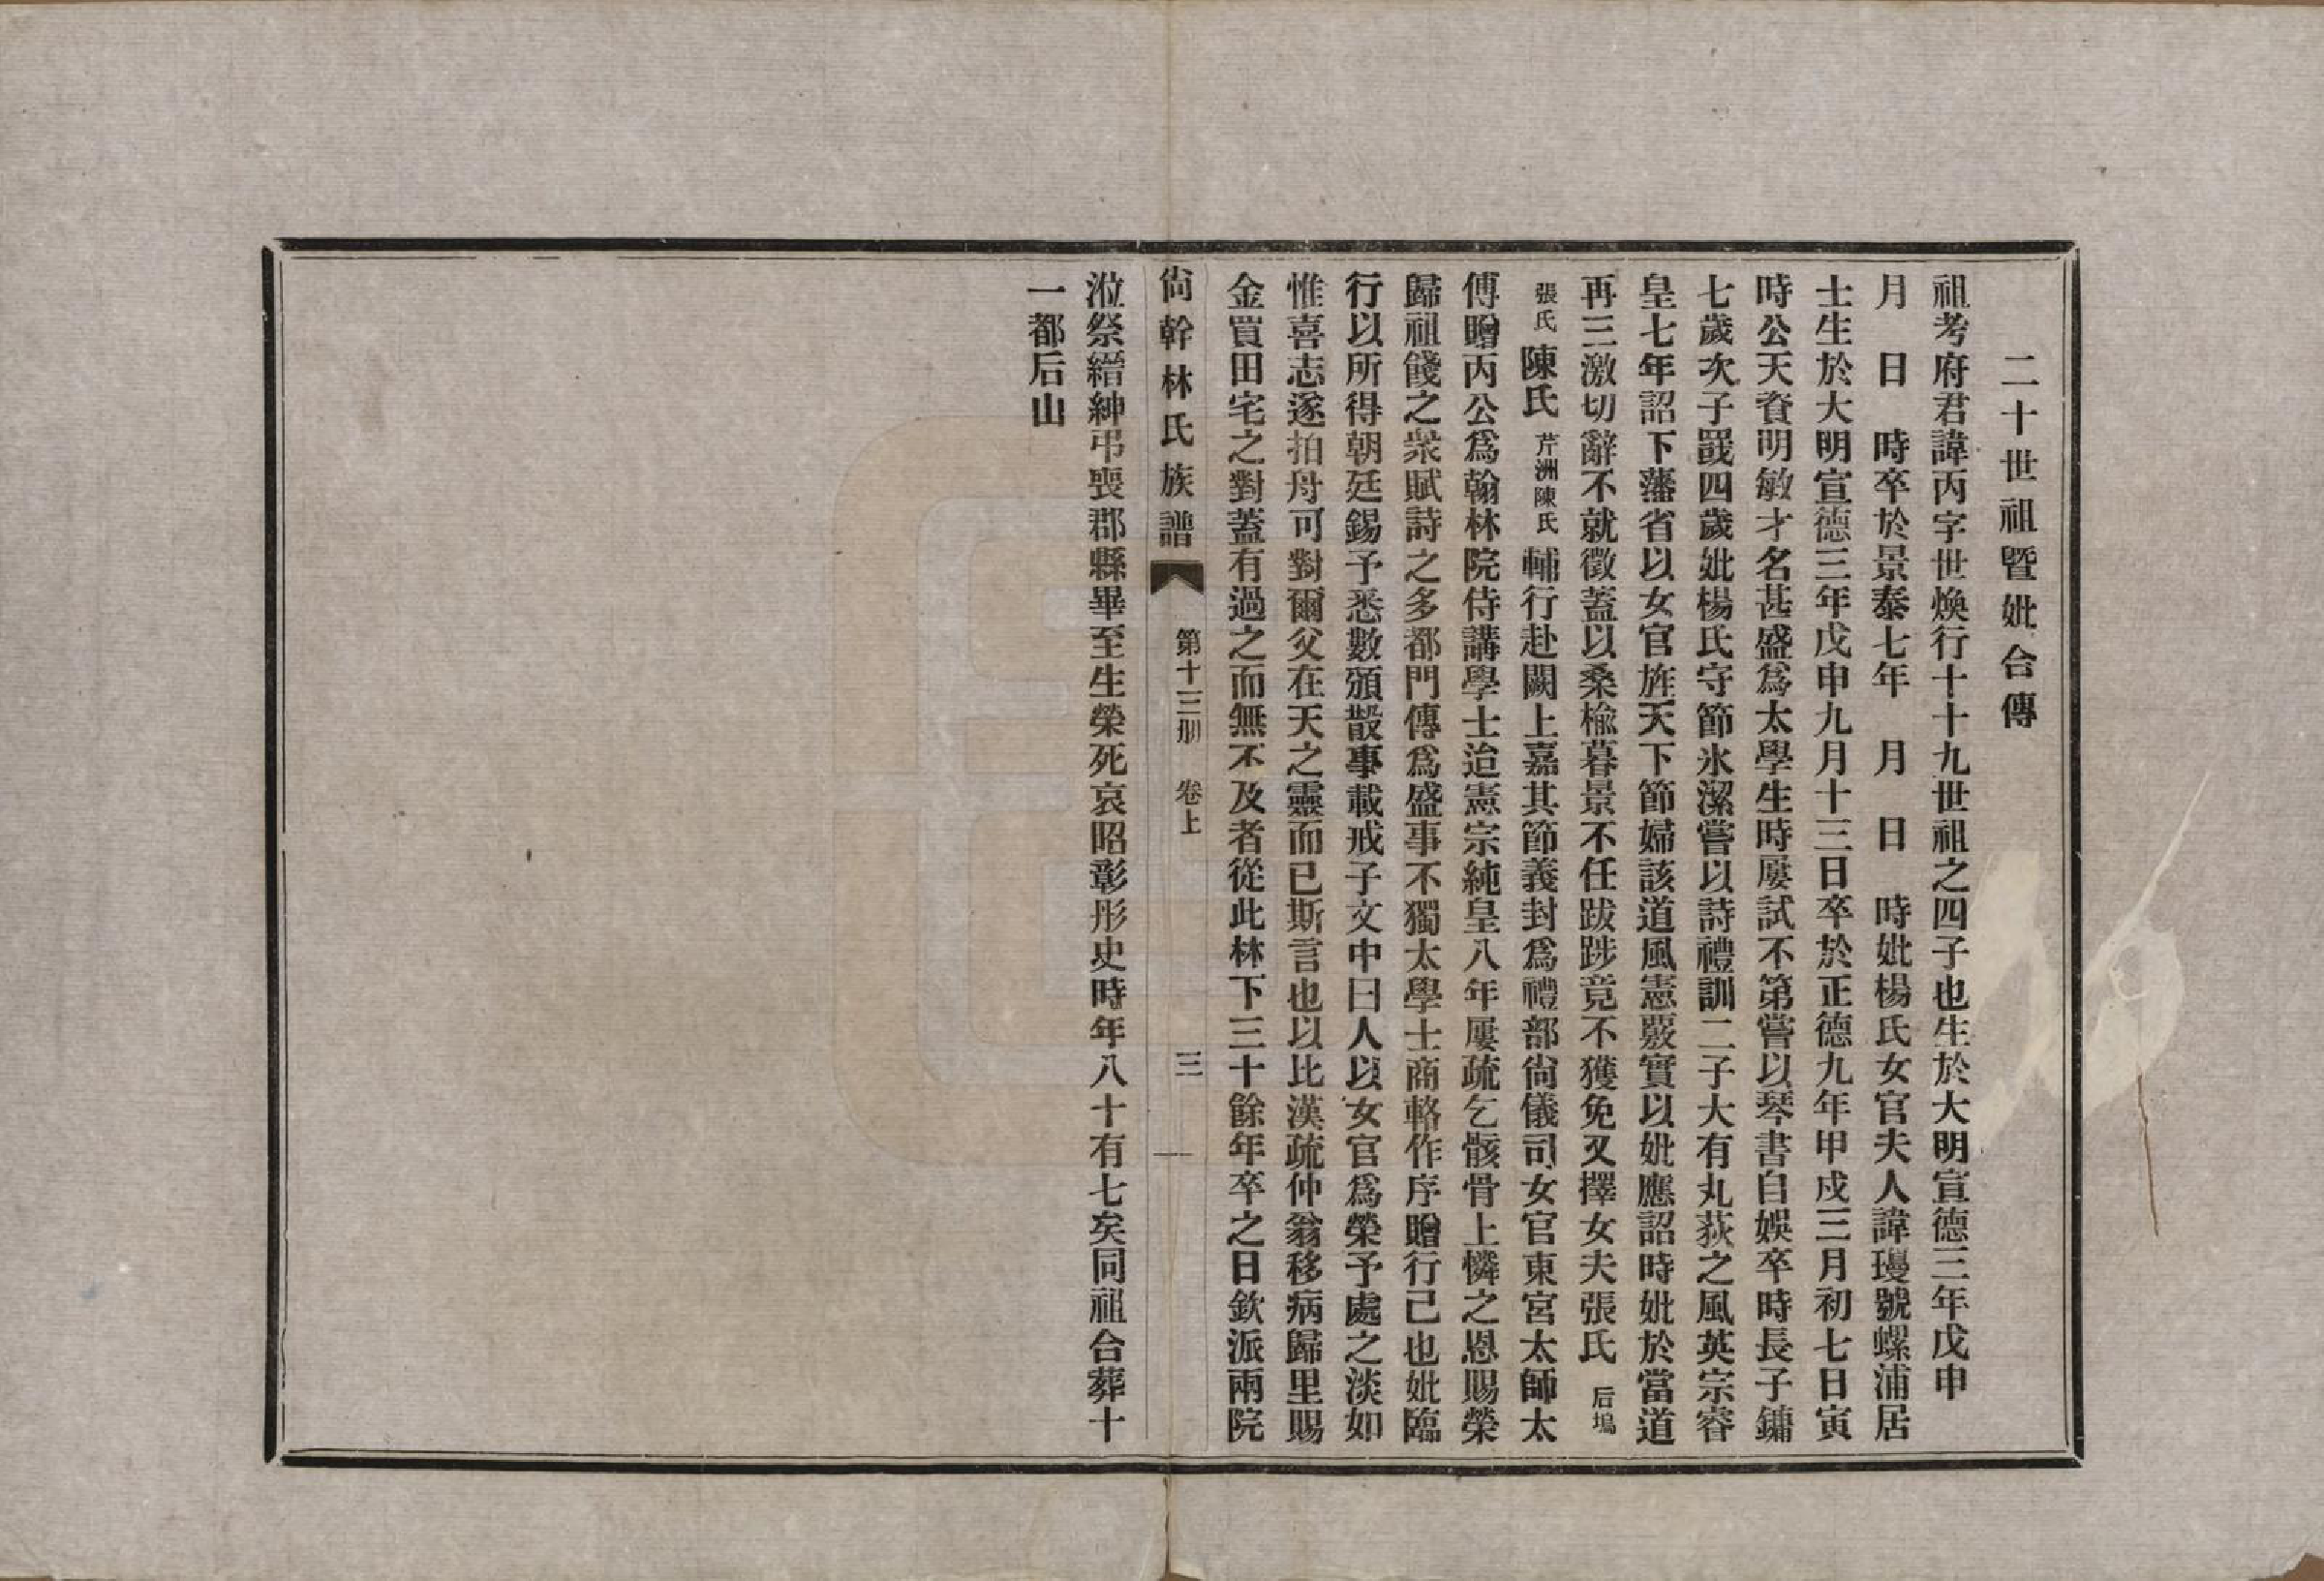 二十世祖暨妣合傳
祖考府君諱丙字世煥行十十九世祖之四子也生於大明宣德三年戊申
月　日　時卒於景泰七年　月　日　時妣楊氏女官夫人諱璦號螺浦居
士生於大明宣德三年戊申九月十三日卒於正德九年甲戍三月初七日寅
時公天資明敏才名甚盛爲太學生時屢試不第嘗以琴書自娛卒時長子鏞
七歲次子罬四歲妣楊氏守節氷潔嘗以詩禮訓二子大有丸荻之風英宗睿
皇七年詔下藩省以女官旌天下節婦該道風憲覈實以妣應詔時妣於當道
再三激切辭不就徵蓋以桑楡暮景不任跋踄竟不獲免又擇女夫張氏后塢
張氏陳氏芹洲陳氏輔行赴闕上嘉其節義封爲禮部尙儀司女官東宮太師太
傅贈丙公爲翰林院侍講學士迨憲宗純皇八年屢疏乞骸骨上憐之恩賜榮
歸祖餞之衆賦詩之多都門傳爲盛事不獨太學士商輅作序贈行己也妣臨
行以所得朝廷錫予悉數頒散事載戒子文中曰人以女官爲榮予處之淡如
惟喜志遂拍舟可對爾父在天之靈而已斯言也以比漢疏仲翁移病歸里賜
金買田宅之對蓋有過之而無不及者從此林下三十餘年卒之日欽派兩院
尙幹林氏族譜　第十三册　卷上　三
涖祭縉紳弔喪郡縣畢至生榮死哀昭彰彤史時年八十有七矣同祖合葬十
一都后山